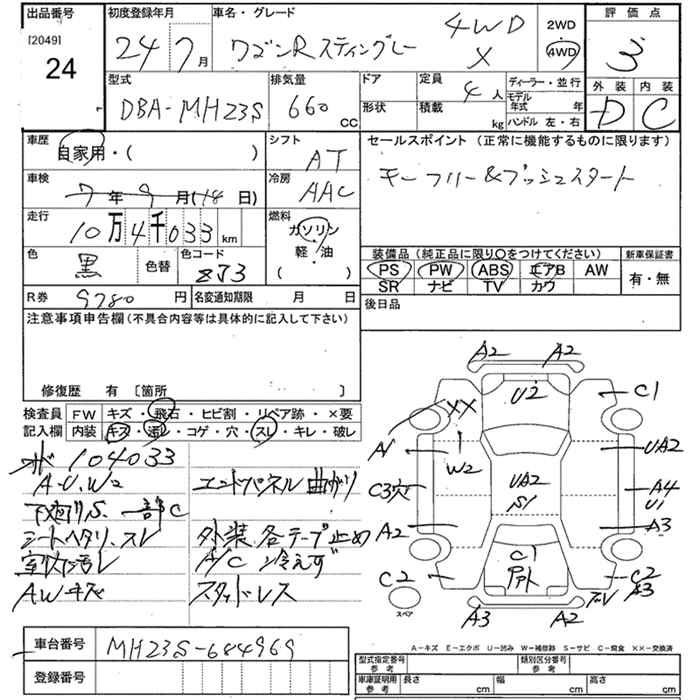 出品番号 初度登録年月 車名・グレード 評価点
[2049] 24 24年7月 ワゴンRスティングレー 4WD X 2WD 4WD 3
型式 排気量 ドア 定員 ディーラー・並行 外装 内装
DBA-MH23S 660 CC 形状 積載 4人 kg モデル年式 年 ハンドル 左・右 D C
車歴 シフト セールスポイント (正常に機能するものに限ります)
自家用・( ) AT
キーフリー&プッシュスタート
車検 冷房
7年9月(18日) AAC
走行 燃料
10万4千033km ガソリン・軽・油( )
装備品 (純正品に限り○をつけてください) 新車保証書
色 黒 色替 色コード ZJ3
PS PW ABS エアB AW 有・無
SR ナビ TV カワ
R券 9780円 名変通知期限 月 日
後日品
注意事項申告欄 (不具合内容等は具体的に記入して下さい)
修復歴 有 [箇所 ]
検査員 FW キズ・飛石・ヒビ割・リペア跡・×要
記入欄 内装 キズ・汚レ・コゲ・穴・スレ・キレ・破レ
104033
A・U・W2 エンドパネル曲がり
下廻りS.一部C
シートヘタリ、スレ 外装各テープ止め
室内汚レ A/C冷えず
AWキズ スタッドレス
A2 A2
U2 C1
XX
A1 W2 UA2
C3穴 UA2 S1 A4 U1
A2 A3
C1
C2 C2 A3
スペア
A3 A2
車台番号 MH23S-684969
登録番号
A-キズ E-エクボ U-凹み W-補修跡 S-サビ C-腐食 XX-交換済
型式指定番号 参考 類別区分番号 参考
車庫証明用 参考 長さ cm 幅 cm 高さ cm